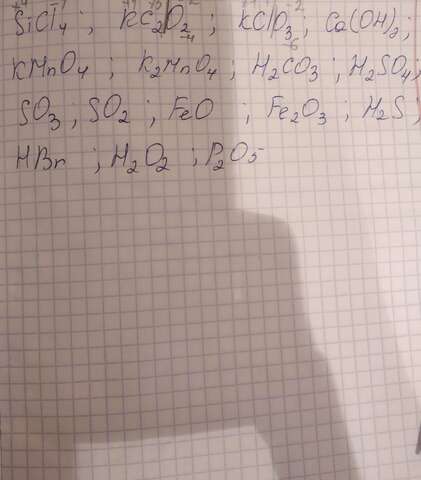 SiCl₄ ; KClO₂ ; KClO₃ ; Ca(OH)₂ ;
KMnO₄ ; K₂MnO₄ ; H₂CO₃ ; H₂SO₄ ;
SO₃ ; SO₂ ; FeO ; Fe₂O₃ ; H₂S ;
HBr ; H₂O₂ ; P₂O₅